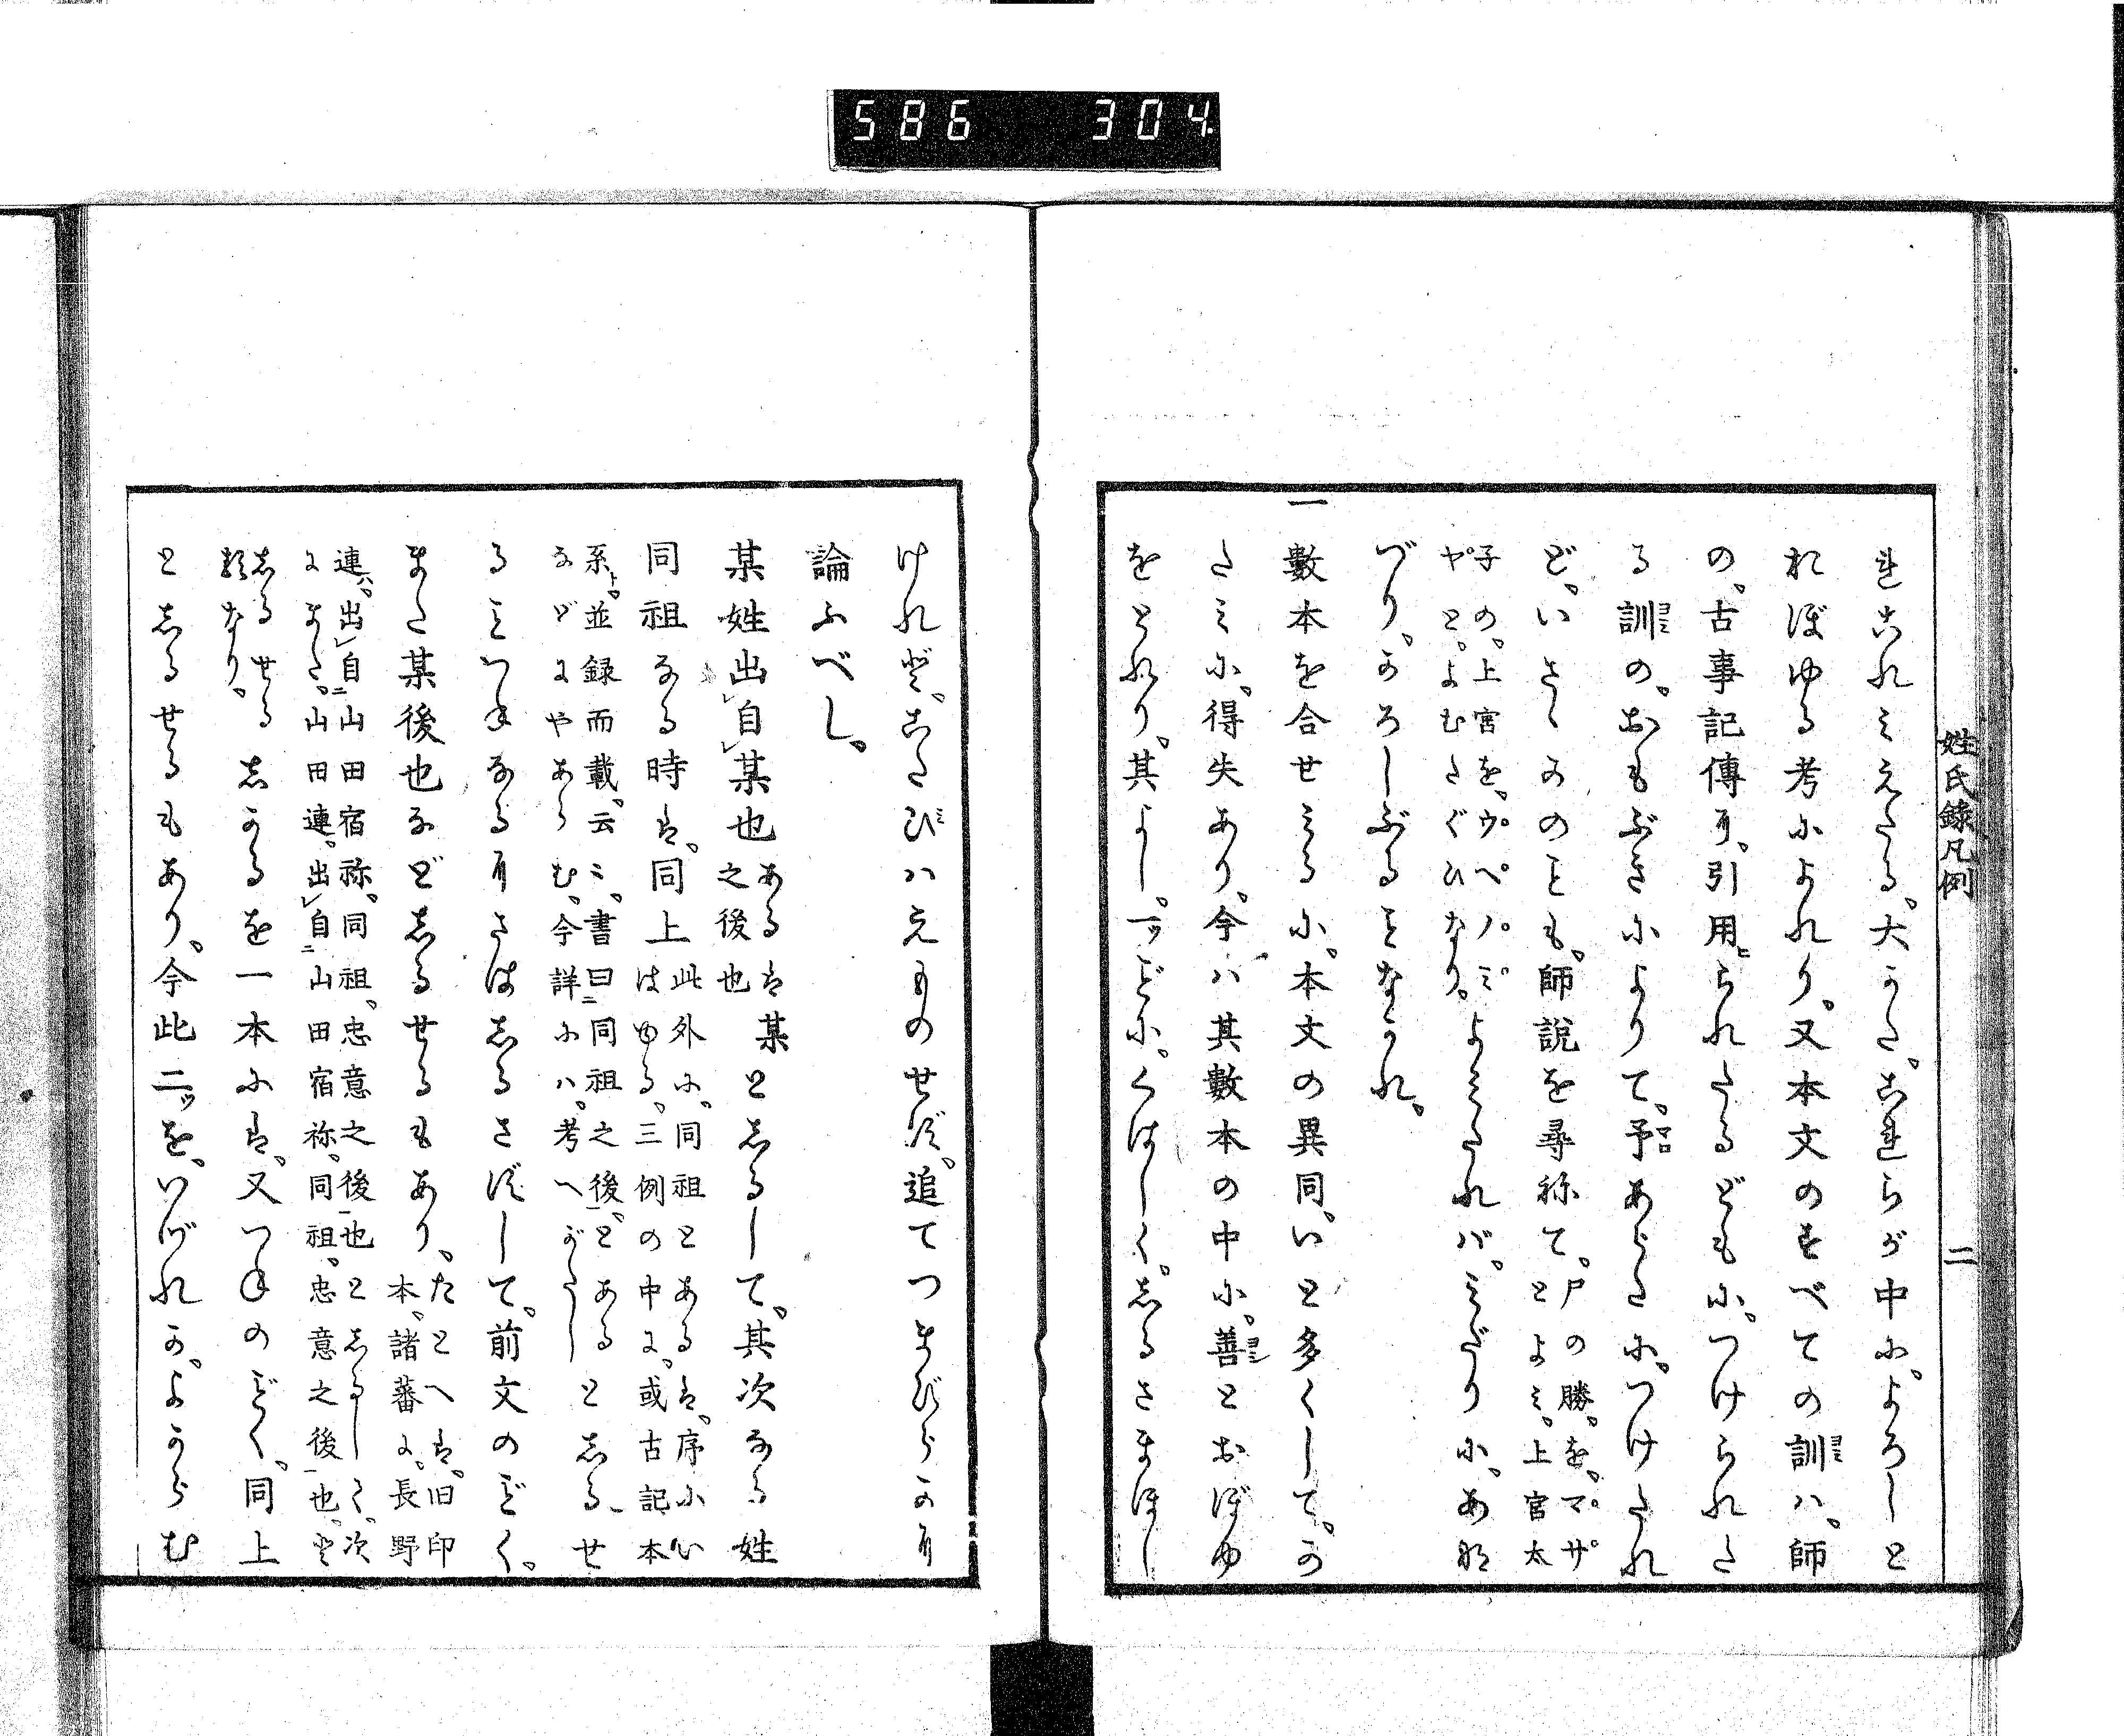 586 304
姓氏録凡例 二
れこれみえたる。大かた。これらが中に。よろしと
おぼゆる考によれり。又本文のすべての訓ハ。師
の。古事記傳に。引用られたるどもに。つけられた
る訓の。おもぶきによりて。予あらたに。つけたれ
ど。いさゝかのことも。師説を尋祢て。
尸の勝。を。マサ
とよミ。上官太
子の。上宮を。ウヘノミ
ヤと。よむたぐひなり。
よみたれバ。ミだりに。あな
づり。かろしぶることなかれ。
一數本を合せミるに。本文の異同。いと多くして。か
たミに。得失あり。今ハ其數本の中に。善とおぼゆ
をとれり。其よし。一ッどに。くはしく。しるさまほし
けれど。こたびハえものせず。追てつまびらかに
論ふべし。
某姓出自某也
あるは某
之後也
としるして。其次なる姓
同祖なる時は。同上
此外に。同祖とある。は。序にい
はゆる。三例の中に。或古記本
系よ。並録而載。云々。書曰同祖之後。とある
などにやあらむ。今詳にハ。考へがたし
としるせ
ることつねなるにさはしるさずして。前文のごとく。
また某後也などしるせるもあり。
たとへは。旧印
本。諸蕃に。長野
連ハ。出自山田宿祢。同祖。忠意之後也としるして。次
に。また。山田連。出自山田宿祢。同祖。忠意之後也。と
しるせる
類なり。
しかるを一本には。又つねのごとく。同上
としるせるもあり。今此二ッを。いづれか。よからむ